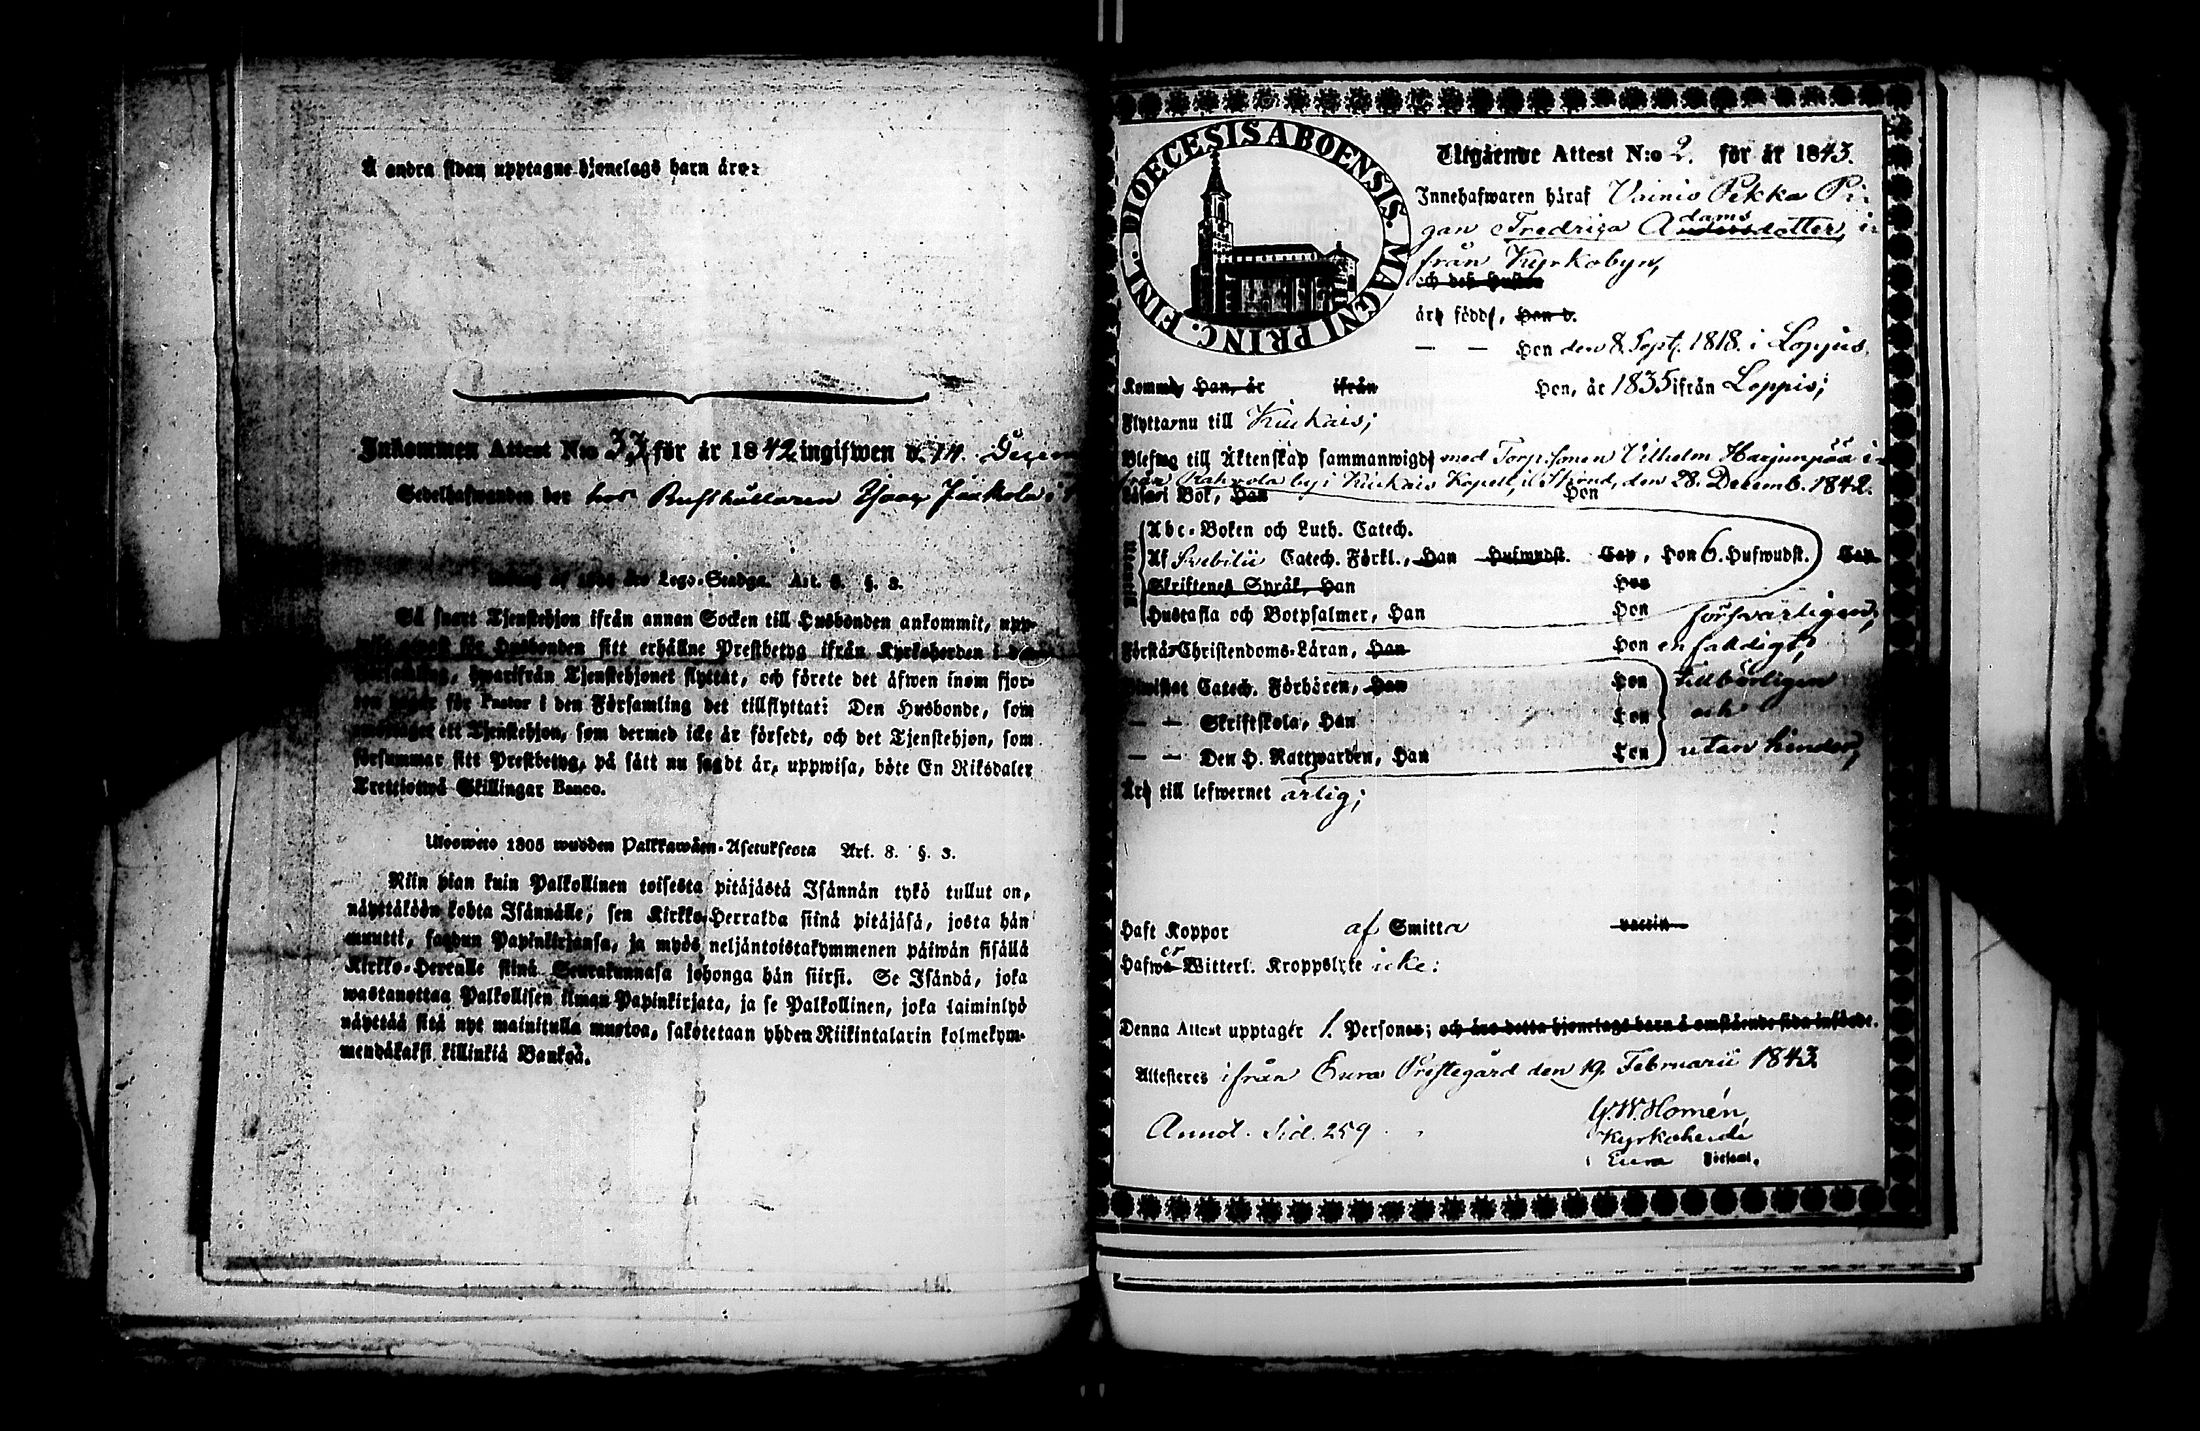 Å andra sidan upptagne hjonelags barn äro:
Inkommen Attest N:o 33 för år 1842 ingifwen d. 14. Decem
Sedelhafwanden bor hos Rusthållaren Isaac Jaakola i
1805 års Lego-Stadga. Art. 8. §. 3.
Så snart Tjenstehjon ifrån annan Socken till Husbonden ankommit, upp-
för Husbonden sitt erhållne Prestbetyg ifrån Kyrkoherden i
hwarifrån Tjenstehjonet flyttat, och förete det äfwen inom fjor-
för Pastor i den Församling det tillflyttat: Den Husbonde, som
ett Tjenstehjon, som dermed icke är försedt, och det Tjenstehjon, som
försummar sitt Prestbetyg, på sätt nu sagdt är, uppwisa, böte En Riksdaler
Trettiotwå Skillingar Banco.
Ulosweto 1805 wuoden Palkkawäen-Asetuksesta Art. 8. §. 3.
Niin pian kuin Palkollinen toisesta pitäjästä Isännän tykö tullut on,
näyttäköön kohta Isännälle, sen Kirkko-Herralda siinä pitäjäsä, josta hän
muutti, saadun Papinkirjansa, ja myös neljäntoistakymmenen päiwän sisällä
Kirkko-Herralle siinä Seurakunnasa johonga hän siirsi. Se Isändä, joka
wastanottaa Palkollisen ilman Papinkirjata, ja se Palkollinen, joka laiminlyö
näyttää sitä nyt mainitulla muotoa, sakotetaan yhden Riikintalarin kolmekym-
mendäkaksi killinkiä Bankoa.
DIOECESIS ABOENSIS. MAGNI PRINC. FINL.
Utgående Attest N:o 2. för år 1843.
Innehafwaren häraf Vainio Pekka Pi-
gan Fredrica Adamsdotter, i-
från Kyrkobyn,
och dess Hustru
äro födde, Han d.
— — Hon den 8. Sept. 1818. i Loppis,
Komne Han, år ifrån Hon, år 1835 ifrån Loppis;
Flyttar nu till Kiukais;
Blefwo till Äktenskap sammanwigde med Torp.sonen Vilhelm Harjunpää i-
från Rahvola by i Kiukais Kapell, il. Stånd, den 28. Decemb. 1842.
Läsa i Bok, Han Hon
Abc-Boken och Luth. Catech.
Af Svebilii Catech. Förkl., Han Hufwudst. Cap, Hon 6. Hufwudst. Cap
Skriftenes Språk, Han Hon
Hustafla och Botpsalmer, Han Hon försvarligen;
Förstår Christendoms-Läran, Han Hon enfaldigt;
Catech. Förhören, Han Hon tillbörligen
— — Skriftskola, Han Hon och
— — Den H. Nattwarden, Han Hon utan hinder;
Äro till lefwernet ärlig;
Haft Koppor af Smitta vaccin
Hafwa er Witterl. Kroppslyte icke:
Denna Attest upptager 1. Personer; och äro detta hjonelags barn å omstående sida införde.
Attesteres ifrån Eura Prestegård den 19. Februarii 1843.
W. W. Homén,
Annot. Sid. 259 Kyrkoherde
i Eura Församl.